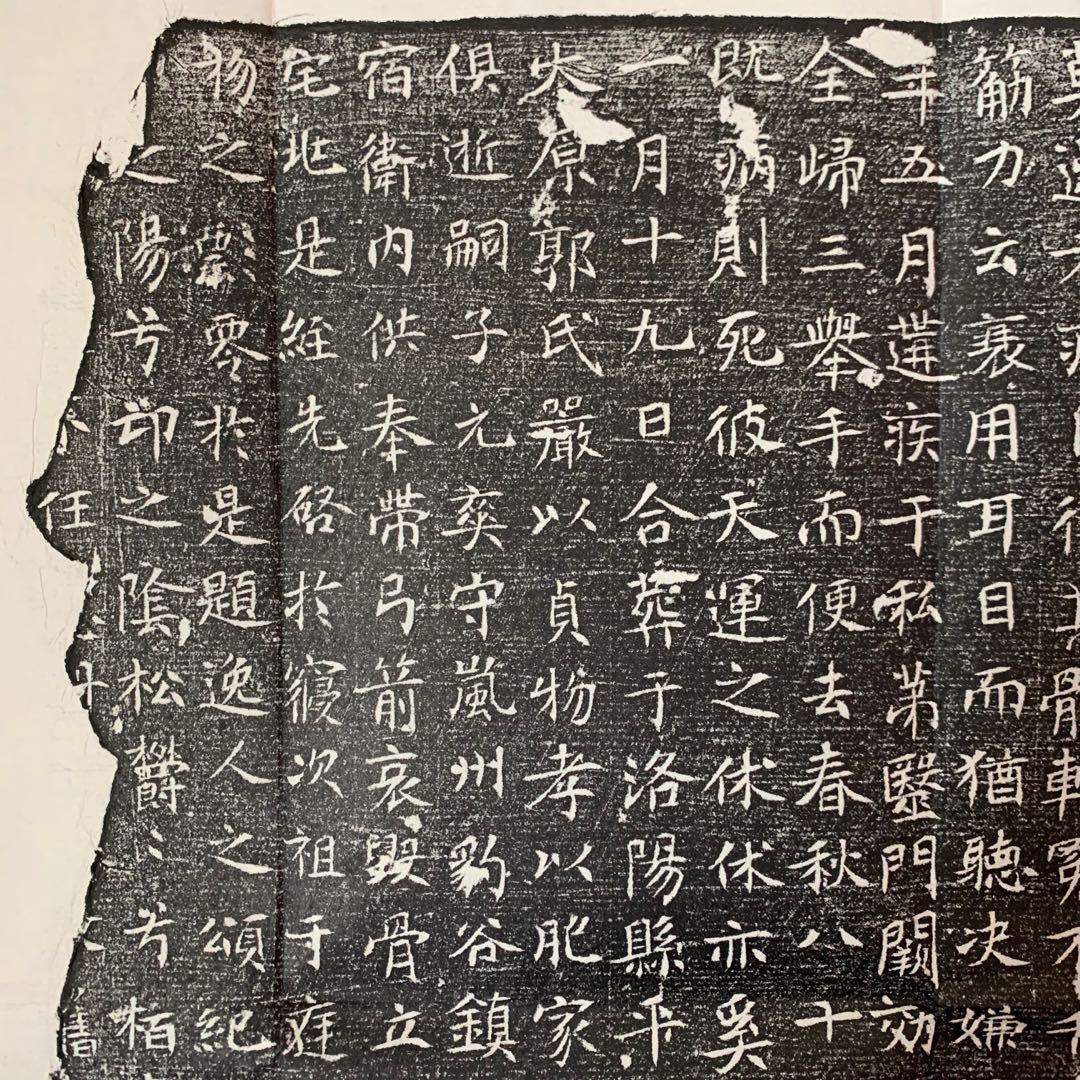 筋力云衰用耳目而猶聽决嫌
年五月遘疾于私第毉門闕効
全歸三舉手而便去春秋八十
既病則死彼天運之休休亦奚
一月十九日合葬于洛陽縣平
太原郭氏嚴以貞物孝以肥家
俱逝嗣子元奕守嵐州豹谷鎮
宿衛内供奉帶弓箭哀毀骨立
宅兆是經先啓於寢次祖于庭
物之零於是題逸人之頌紀
之陽兮卭之陰松欝〻兮栢
任